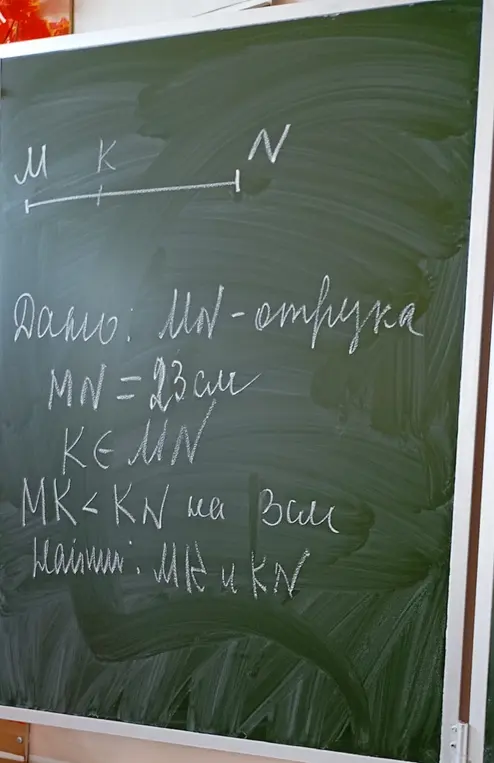 M K N
Дано: MN - отрезка
MN = 23 см
K ∈ MN
MK < KN на 3 см
Найти: MK и KN